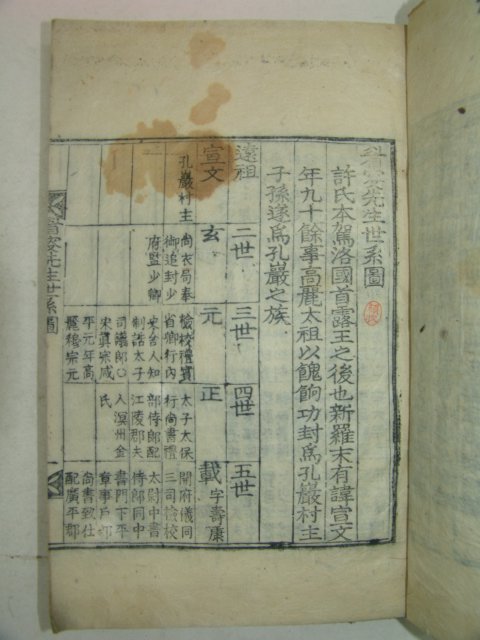 先生世系圖
許氏本駕洛國首露王之後也新羅末有諱宣文
年九十餘事高麗太祖以餽餉功封爲孔巖村主
子孫遂爲孔巖之族
遠祖
二世
三世
四世
五世
宣文
玄
元
正
載 字壽康
孔巖村主
尙衣局奉
御追封少
府監少卿
檢校禮賓
省卿行內
史舍人知
制誥太子
司議郎○
宋眞宗咸
平元年高
麗穆宗元
太子太保
行尙書禮
部侍郎配
江陵郡夫
人溟州金
氏
開府儀同
三司檢校
太尉中書
侍郎同中
書門下平
章事戶部
尙書致仕
配廣平郡
先生世系圖
一